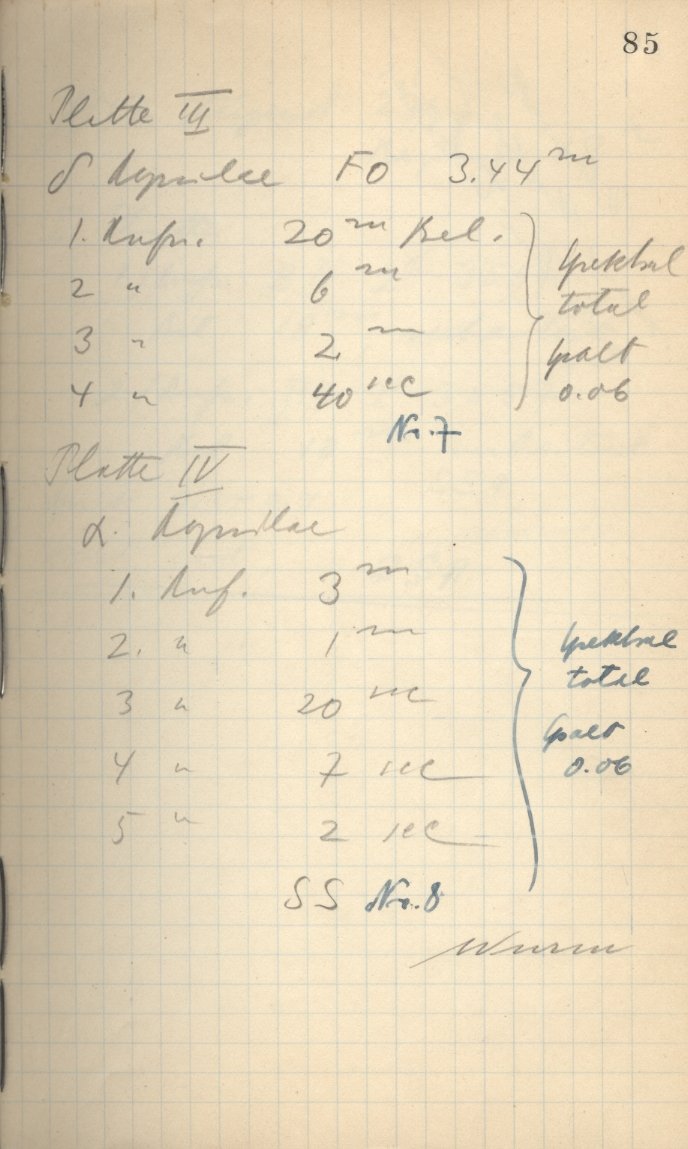 85
Platte III
δ Aquilae F0 3.44ᵐ
1. Aufn. 20ᵐ Bel.
2 " 6ᵐ
3 " 2ᵐ
4 " 40 sec
Spektral
total
Spalt
0.06
Nr. 7
Platte IV
α. Aquilae
1. Auf. 3ᵐ
2. " 1ᵐ
3 " 20 sec
4 " 7 sec
5 " 2 sec
Spektral
total
Spalt
0.06
SS Nr. 8
Wurm